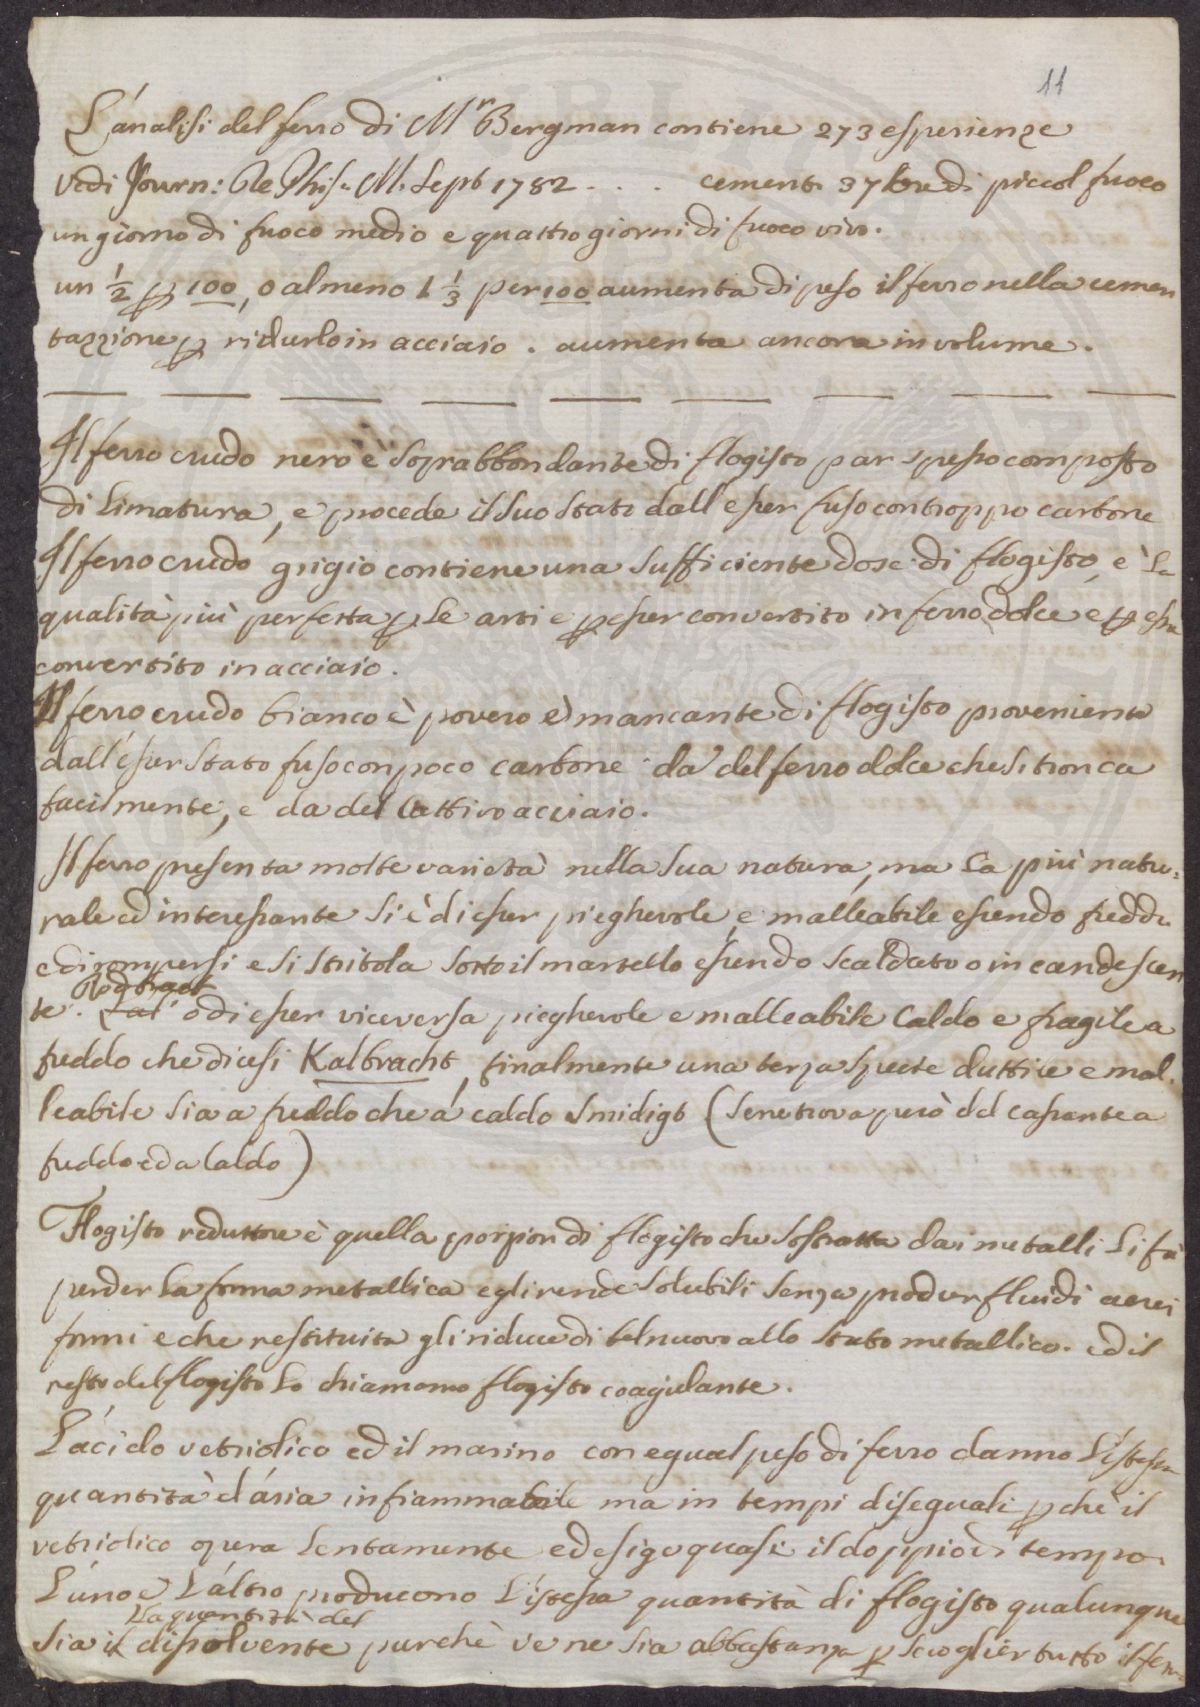 11
L'analisi del ferro di Mr Bergman contiene 273 esperienze
vedi Journ: De Phis. M. Sept 1782 . . . cement. 37 lbre di piccol fuoco
un giorno di fuoco medio e quattro giorni di fuoco vivo.
un ½ p 100, o al meno 1 ⅓ per 100 aumenta di peso il ferro nella cemen
tazzione p ridurlo in acciaio. aumenta ancora in volume.
Il ferro crudo nero è soprabbondante di flogisto par spesso composto
di limatura, e procede il suo stato dall esser fuso con troppo carbone
Il ferro crudo grigio contiene una sufficiente dose di flogisto, è la
qualità più perfetta p le arti e p esser convertito in ferro dolce e p esser
convertito in acciaio.
Il ferro crudo bianco è povero e mancante di flogisto proveniente
dall'esser stato fuso con poco carbone da del ferro dolce che si tronca
facilmente, e da del cattivo acciaio.
Il ferro presenta molte varietà nella sua natura, ma la più natu=
rale ed interessante si è di esser pieghevole, e malleabile essendo freddo
e di rompersi e si stritola sotto il martello essendo scaldato o incandescen
te. o di esser viceversa pieghevole e malleabile caldo e fragile a
freddo che dicesi Kalbracht, finalmente una terza specie duttile e mal
leabile sia a freddo che á caldo Smidigt (se ne trova però del cassante a
freddo ed a caldo)
Flogisto reduttore è quella porzion di flogisto che sottratta dai metalli li fà
perder la forma metallica e gli rende solubili senza produr fluidi aerei
formi e che restituita gli riduce di bel nuovo allo stato metallico. ed il
resto del flogisto lo chiamomo flogisto coagulante.
L'acido vetriolico ed il marino con egual peso di ferro danno l'istessa
quantità d'aria infiammabile ma in tempi diseguali p chè il
vetriolico opera lentamente ed esige quasi il doppio di tempo.
L'uno e L'altro producono l'istessa quantità di flogisto qualunque
La quantità del
sia il dissolvente purchè ve ne sia abbastanza p scioglier tutto il ferro